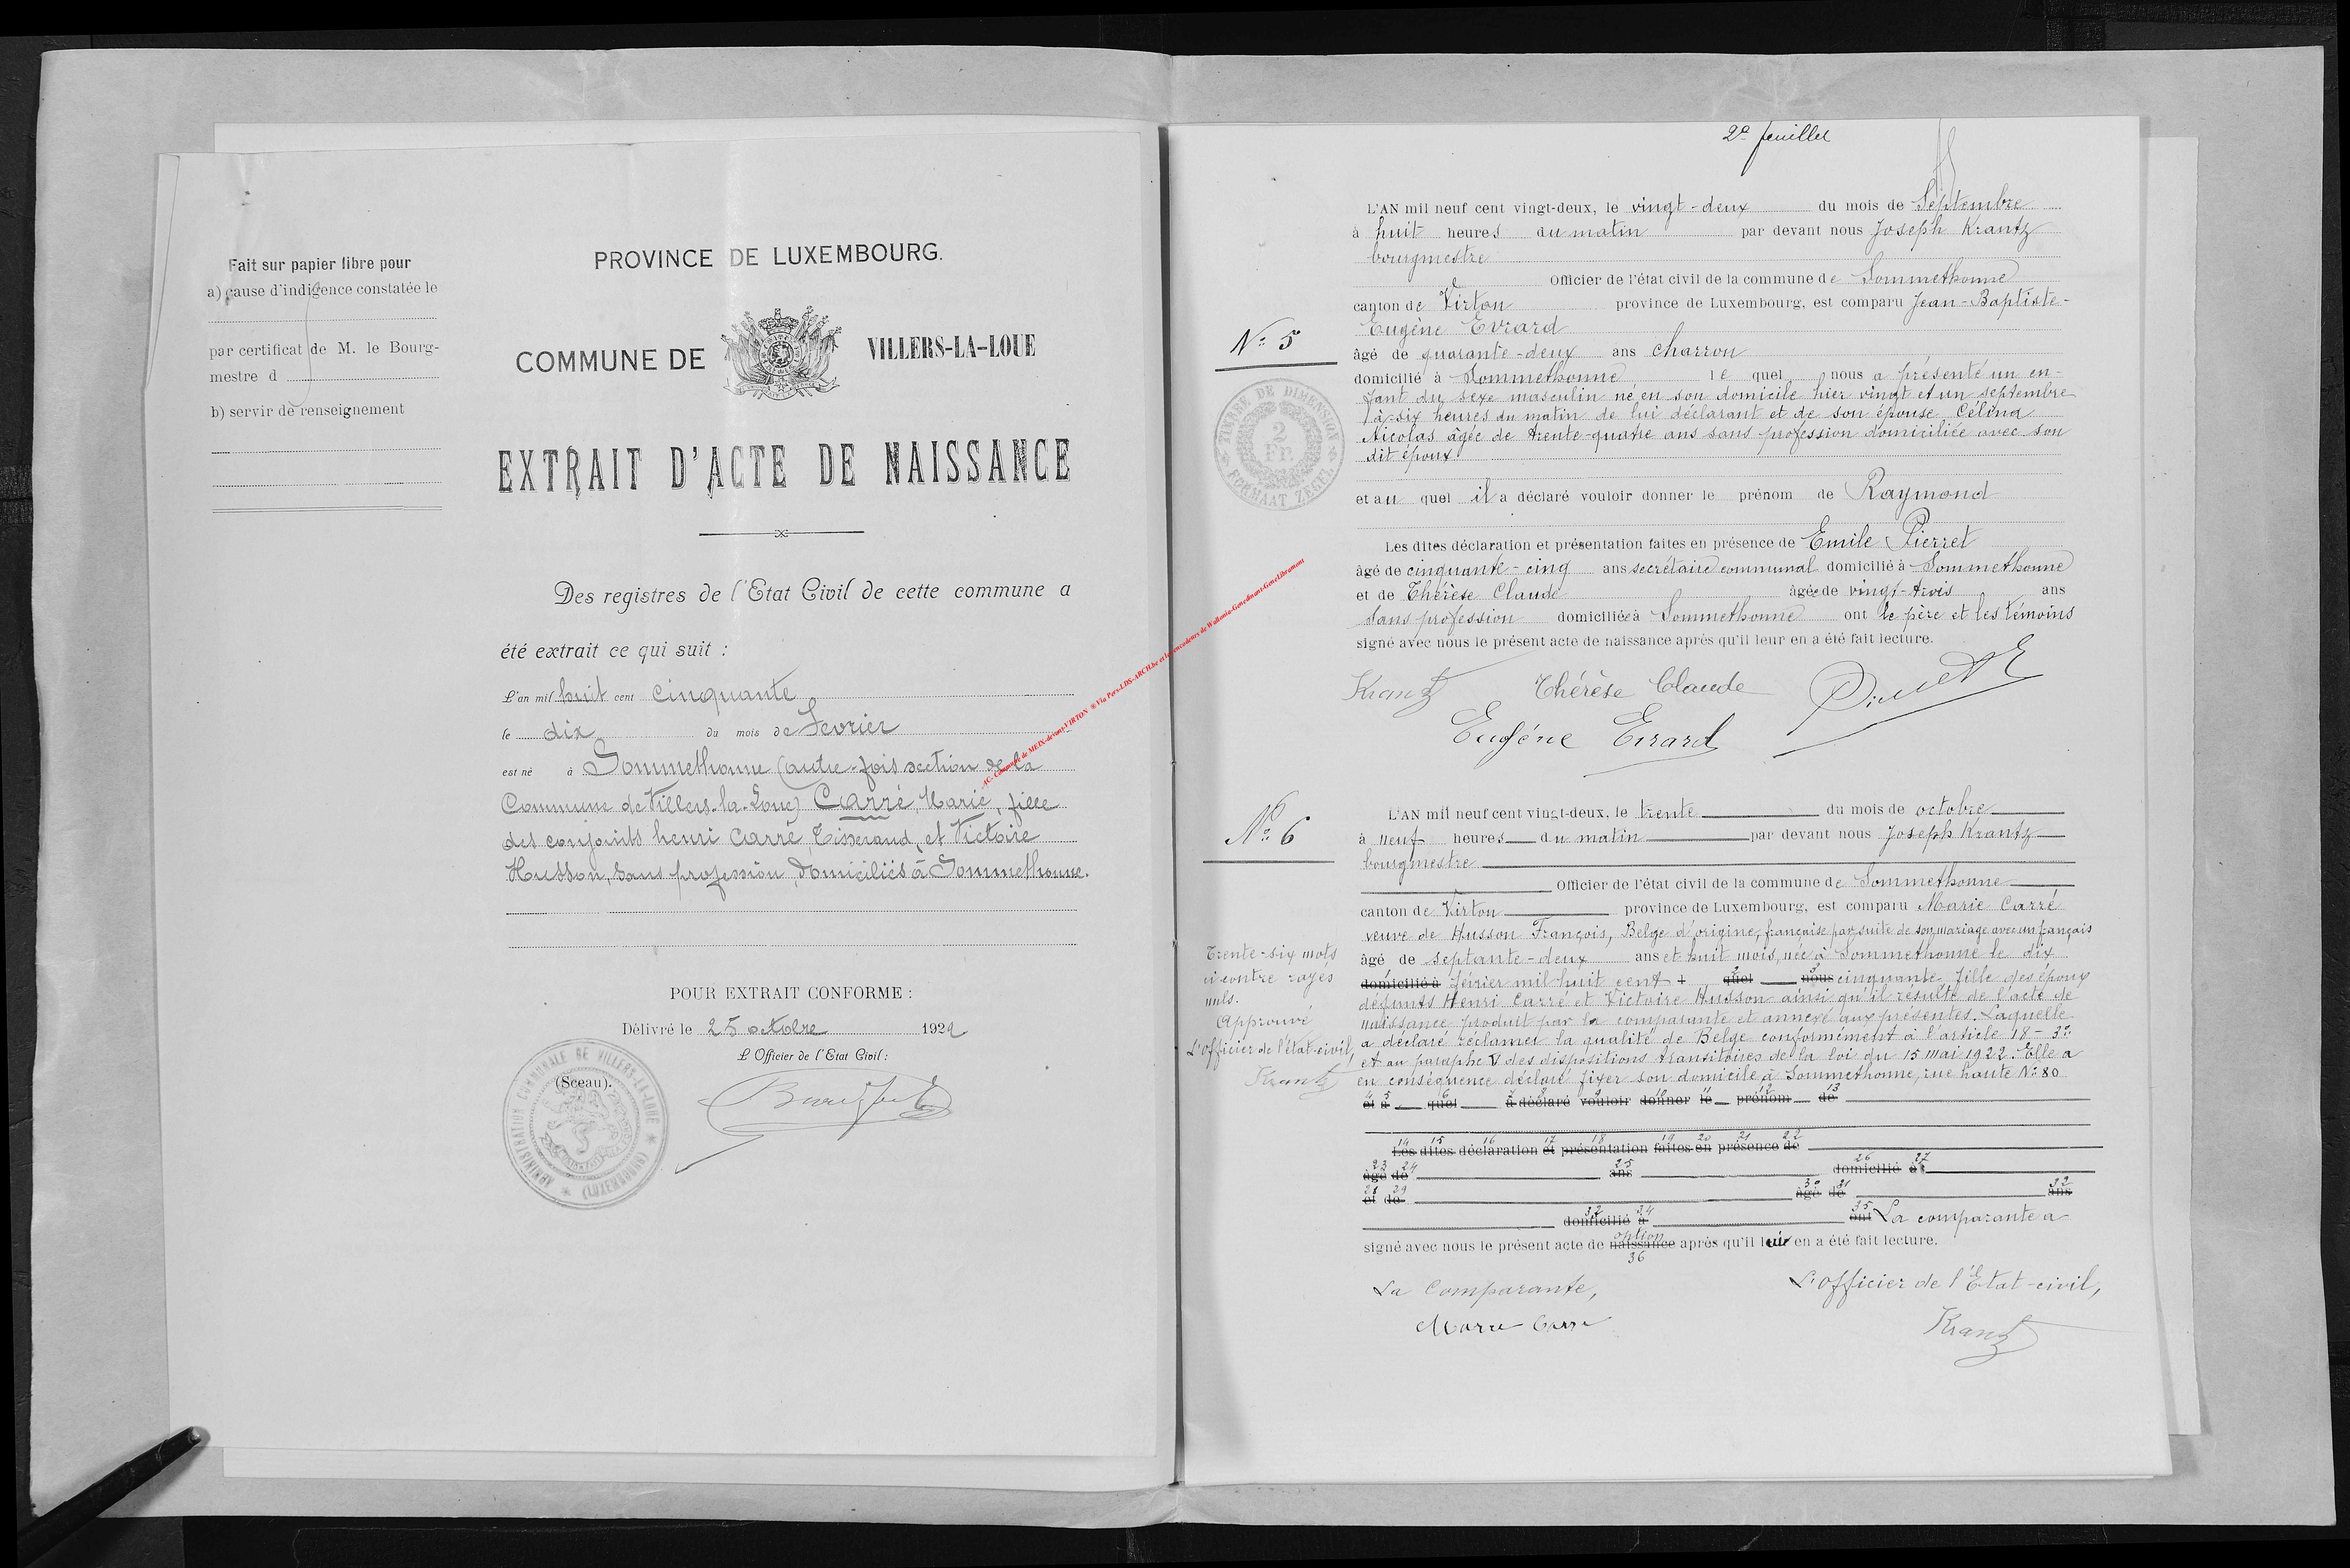 Fait sur papier libre pour
a) cause d'indigence constatée le
par certificat de M. le Bourg-
mestre d
b) servir de renseignement
PROVINCE DE LUXEMBOURG.
COMMUNE DE VILLERS-LA-LOUE
EXTRAIT D'ACTE DE NAISSANCE
Des registres de l'Etat Civil de cette commune a
été extrait ce qui suit :
L'an mil huit cent cinquante
le dix du mois de Fevrier
est né à Sommethonne (autre-fois section de la
Commune de Villers-la-Loue) Carré, Marie, fille
des conjoints henri Carré, Tisserand, et Victoire
Husson, sans profession, domiciliés à Sommethonne.
POUR EXTRAIT CONFORME :
Délivré le 25 octobre 1922
L'Officier de l'Etat Civil :
(Sceau).
ADMINISTRATION COMMUNALE DE VILLERS-LA-LOUE * (LUXEMBOURG) *
2e feuillet
L'AN mil neuf cent vingt-deux, le vingt-deux du mois de Septembre
à huit heures du matin par devant nous Joseph Krantz
bourgmestre
Officier de l'état civil de la commune de Sommethonne
canton de Virton province de Luxembourg, est comparu Jean-Baptiste-
Eugène Evrard
No 5
âgé de quarante-deux ans charron
domicilié à Sommethonne le quel nous a présenté un en-
fant du sexe masculin né en son domicile hier vingt et un septembre
à six heures du matin de lui déclarant et de son épouse Célina
Nicolas âgée de trente-quatre ans sans profession domiciliée avec son
dit époux
TIMBRE DE DIMENSION
2
Fr.
FORMAAT ZEGEL
et au quel il a déclaré vouloir donner le prénom de Raymond
Les dites déclaration et présentation faites en présence de Emile Pierret
âgé de cinquante-cinq ans secrétaire communal domicilié à Sommethonne
et de Thérèse Claude âgée de vingt-trois ans
sans profession domiciliée à Sommethonne ont le père et les témoins
signé avec nous le présent acte de naissance après qu'il leur en a été fait lecture.
Krantz Thérèse Claude Pierret
Eugéne Evrard
No 6
L'AN mil neuf cent vingt-deux, le trente du mois de octobre
à neuf heures du matin par devant nous Joseph Krantz
bourgmestre
Officier de l'état civil de la commune de Sommethonne
canton de Virton province de Luxembourg, est comparu Marie Carré
veuve de Husson François, Belge d'origine, française par suite de son mariage avec un français
âgé de septante-deux ans et huit mois, née à Sommethonne le dix
domicilié à février mil huit cent + quel nous cinquante, fille des époux
défunts Henri Carré et Victoire Husson ainsi qu'il résulte de l'acte de
naissance produit par la comparante et annexé aux présentes. Laquelle
a déclaré réclamer la qualité de Belge conformément à l'article 18 - 3o
et au paraphe V des dispositions transitoires de la loi du 15 mai 1922. Elle a
en conséquence déclaré fixer son domicile à Sommethonne, rue haute No 80
Trente-six mots
ci-contre rayés
nuls.
Approuvé
L'officier de l'état-civil,
Krantz
4 5 6 7 8 9 10 11 12 13
et à quel a déclaré vouloir donner le prénom de
14 15 16 17 18 19 20 21 22
Les dites déclaration et présentation faites en présence de
23 24 25 26 27
âgé de ans domicilié à
28 29 30 31 32
et de âgé de ans
34 35
domicilié à ont La comparante a
option
signé avec nous le présent acte de naissance après qu'il leur en a été fait lecture.
36
La Comparante, L'officier de l'Etat-civil,
Marie Carre Krantz